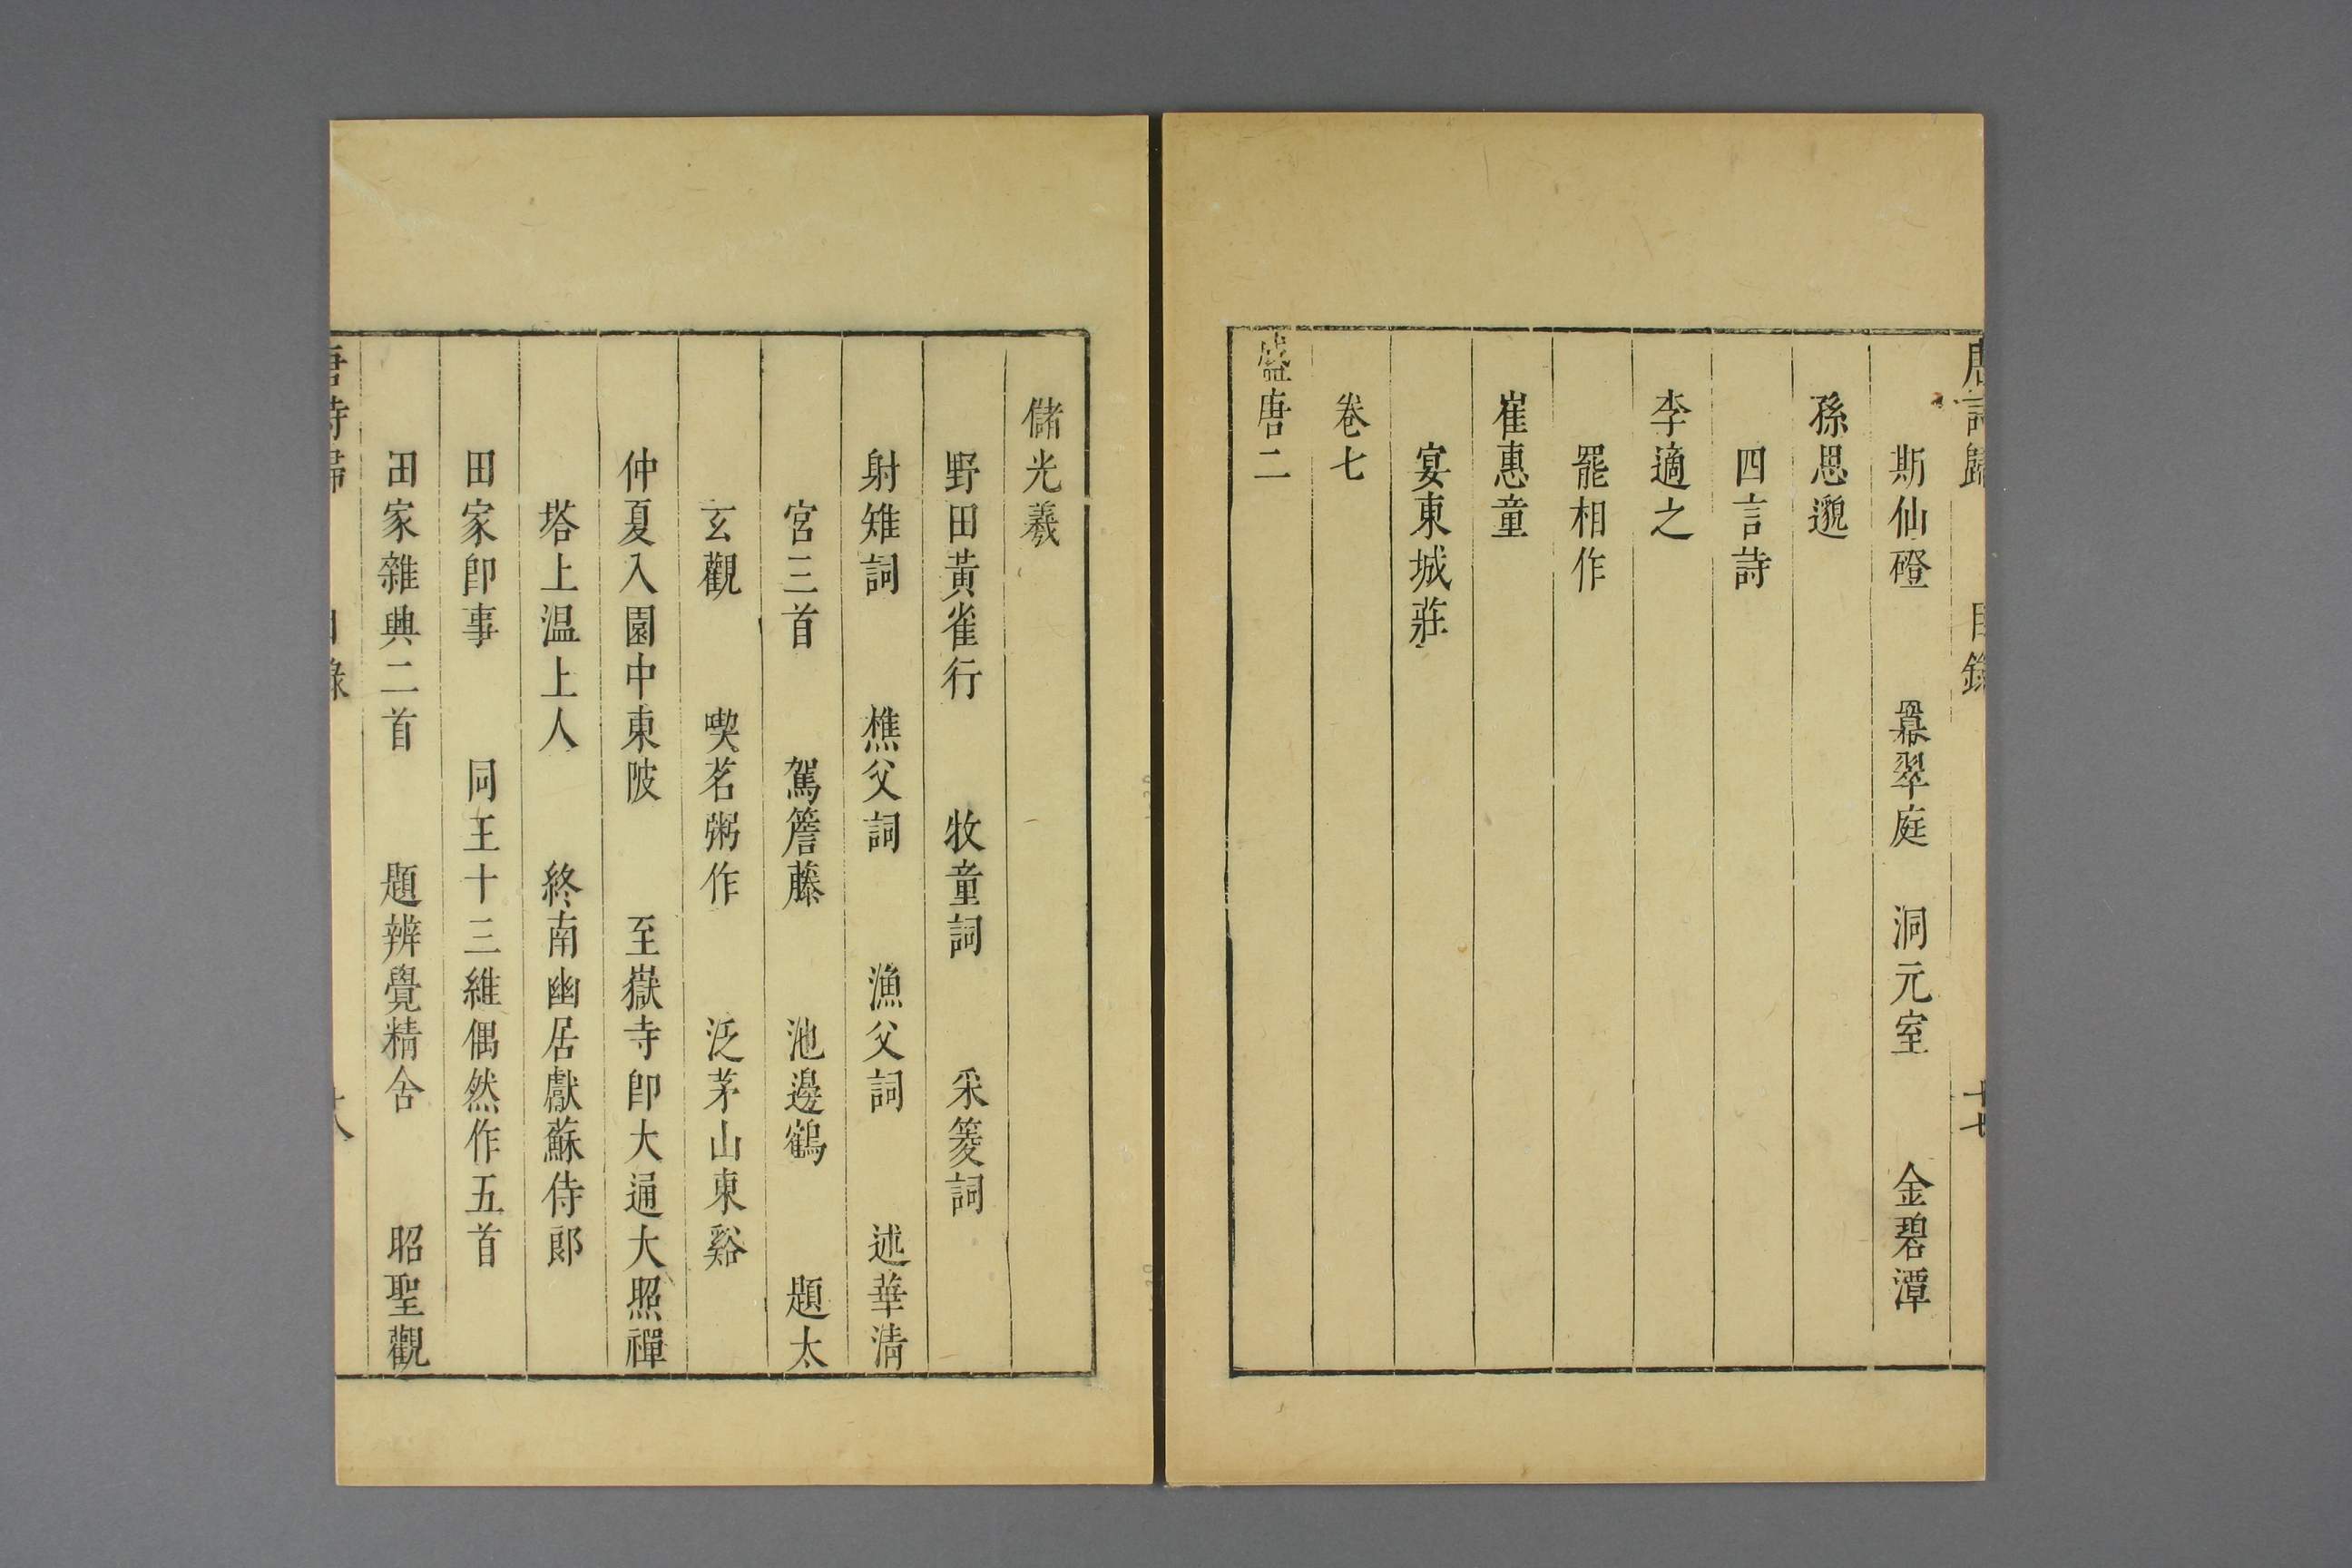 唐詩歸 目錄 十七
斯仙磴 羃翠庭 洞元室 金碧潭
孫思邈
四言詩
李適之
罷相作
崔惠童
宴東城莊
卷七
盛唐二
儲光羲
野田黃雀行 牧童詞 采菱詞
射雉詞 樵父詞 漁父詞 述華清
宮三首 駕簷藤 池邊鶴 題太
玄觀 喫茗粥作 泛茅山東谿
仲夏入園中東陂 至嶽寺卽大通大照禪
塔上温上人 終南幽居獻蘇侍郎
田家卽事 同王十三維偶然作五首
田家雜興二首 題辨覺精舍 昭聖觀
唐詩歸 目錄 十八